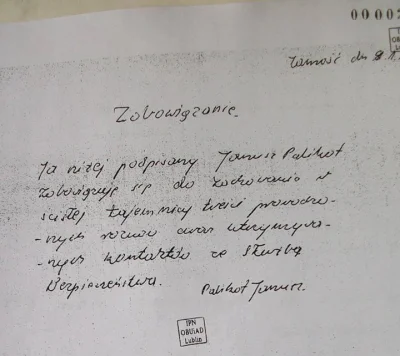 0000
IPN
OBUiAD
Lublin
Zamość dn 9.1
Zobowiązanie.
Ja niżej podpisany Janusz Palikot
zobowiązuję się do zachowania w
ścisłej tajemnicy treści prowadzo-
-nych rozmów oraz utrzymywa-
-nych kontaktów ze Służbą
Bezpieczeństwa.
Palikot Janusz.
IPN
OBUiAD
Lublin